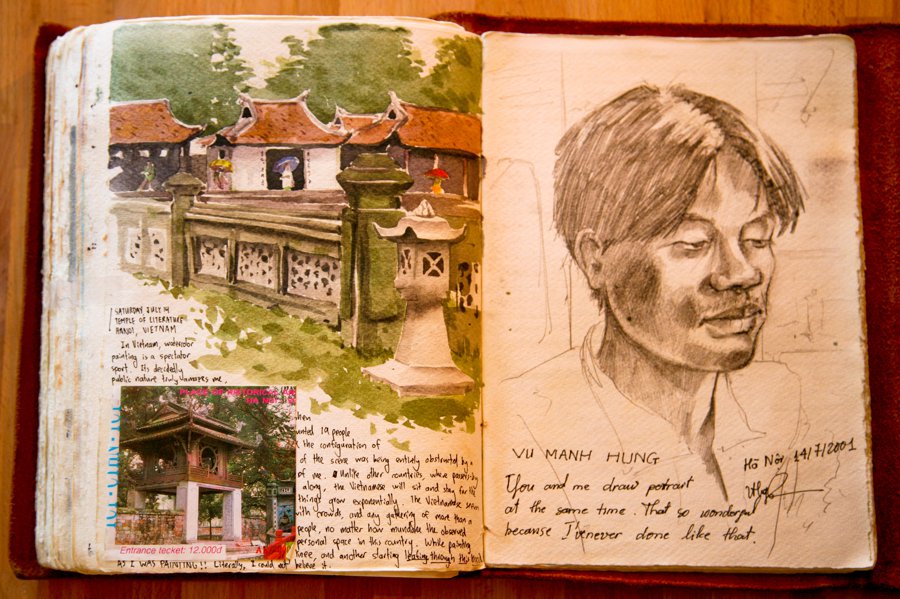 SATURDAY, JULY 14
TEMPLE OF LITERATURE
HANOI, VIETNAM
In Vietnam, watercolor
painting is a spectator
sport. Its decidedly
public nature truly unnerves me,
then
unted 19 people
the configuration of
of the scene was being entirely obstructed by a
of me. Unlike other countries, where passers-by
along, the Vietnamese will sit and stay for
things grow exponentially. The Vietnamese
with crowds, and any gathering of more than a
people, no matter how mundane the observed
personal space in this country. While painting
knee, and another starting leafing through this book
AS I WAS PAINTING!! Literally, I could not believe it.
Entrance tecket: 12.000đ
VU MANH HUNG
Hà Nội 14/7/2001
You and me draw potrait
at the same time. That so wonderful
because I never done like that.